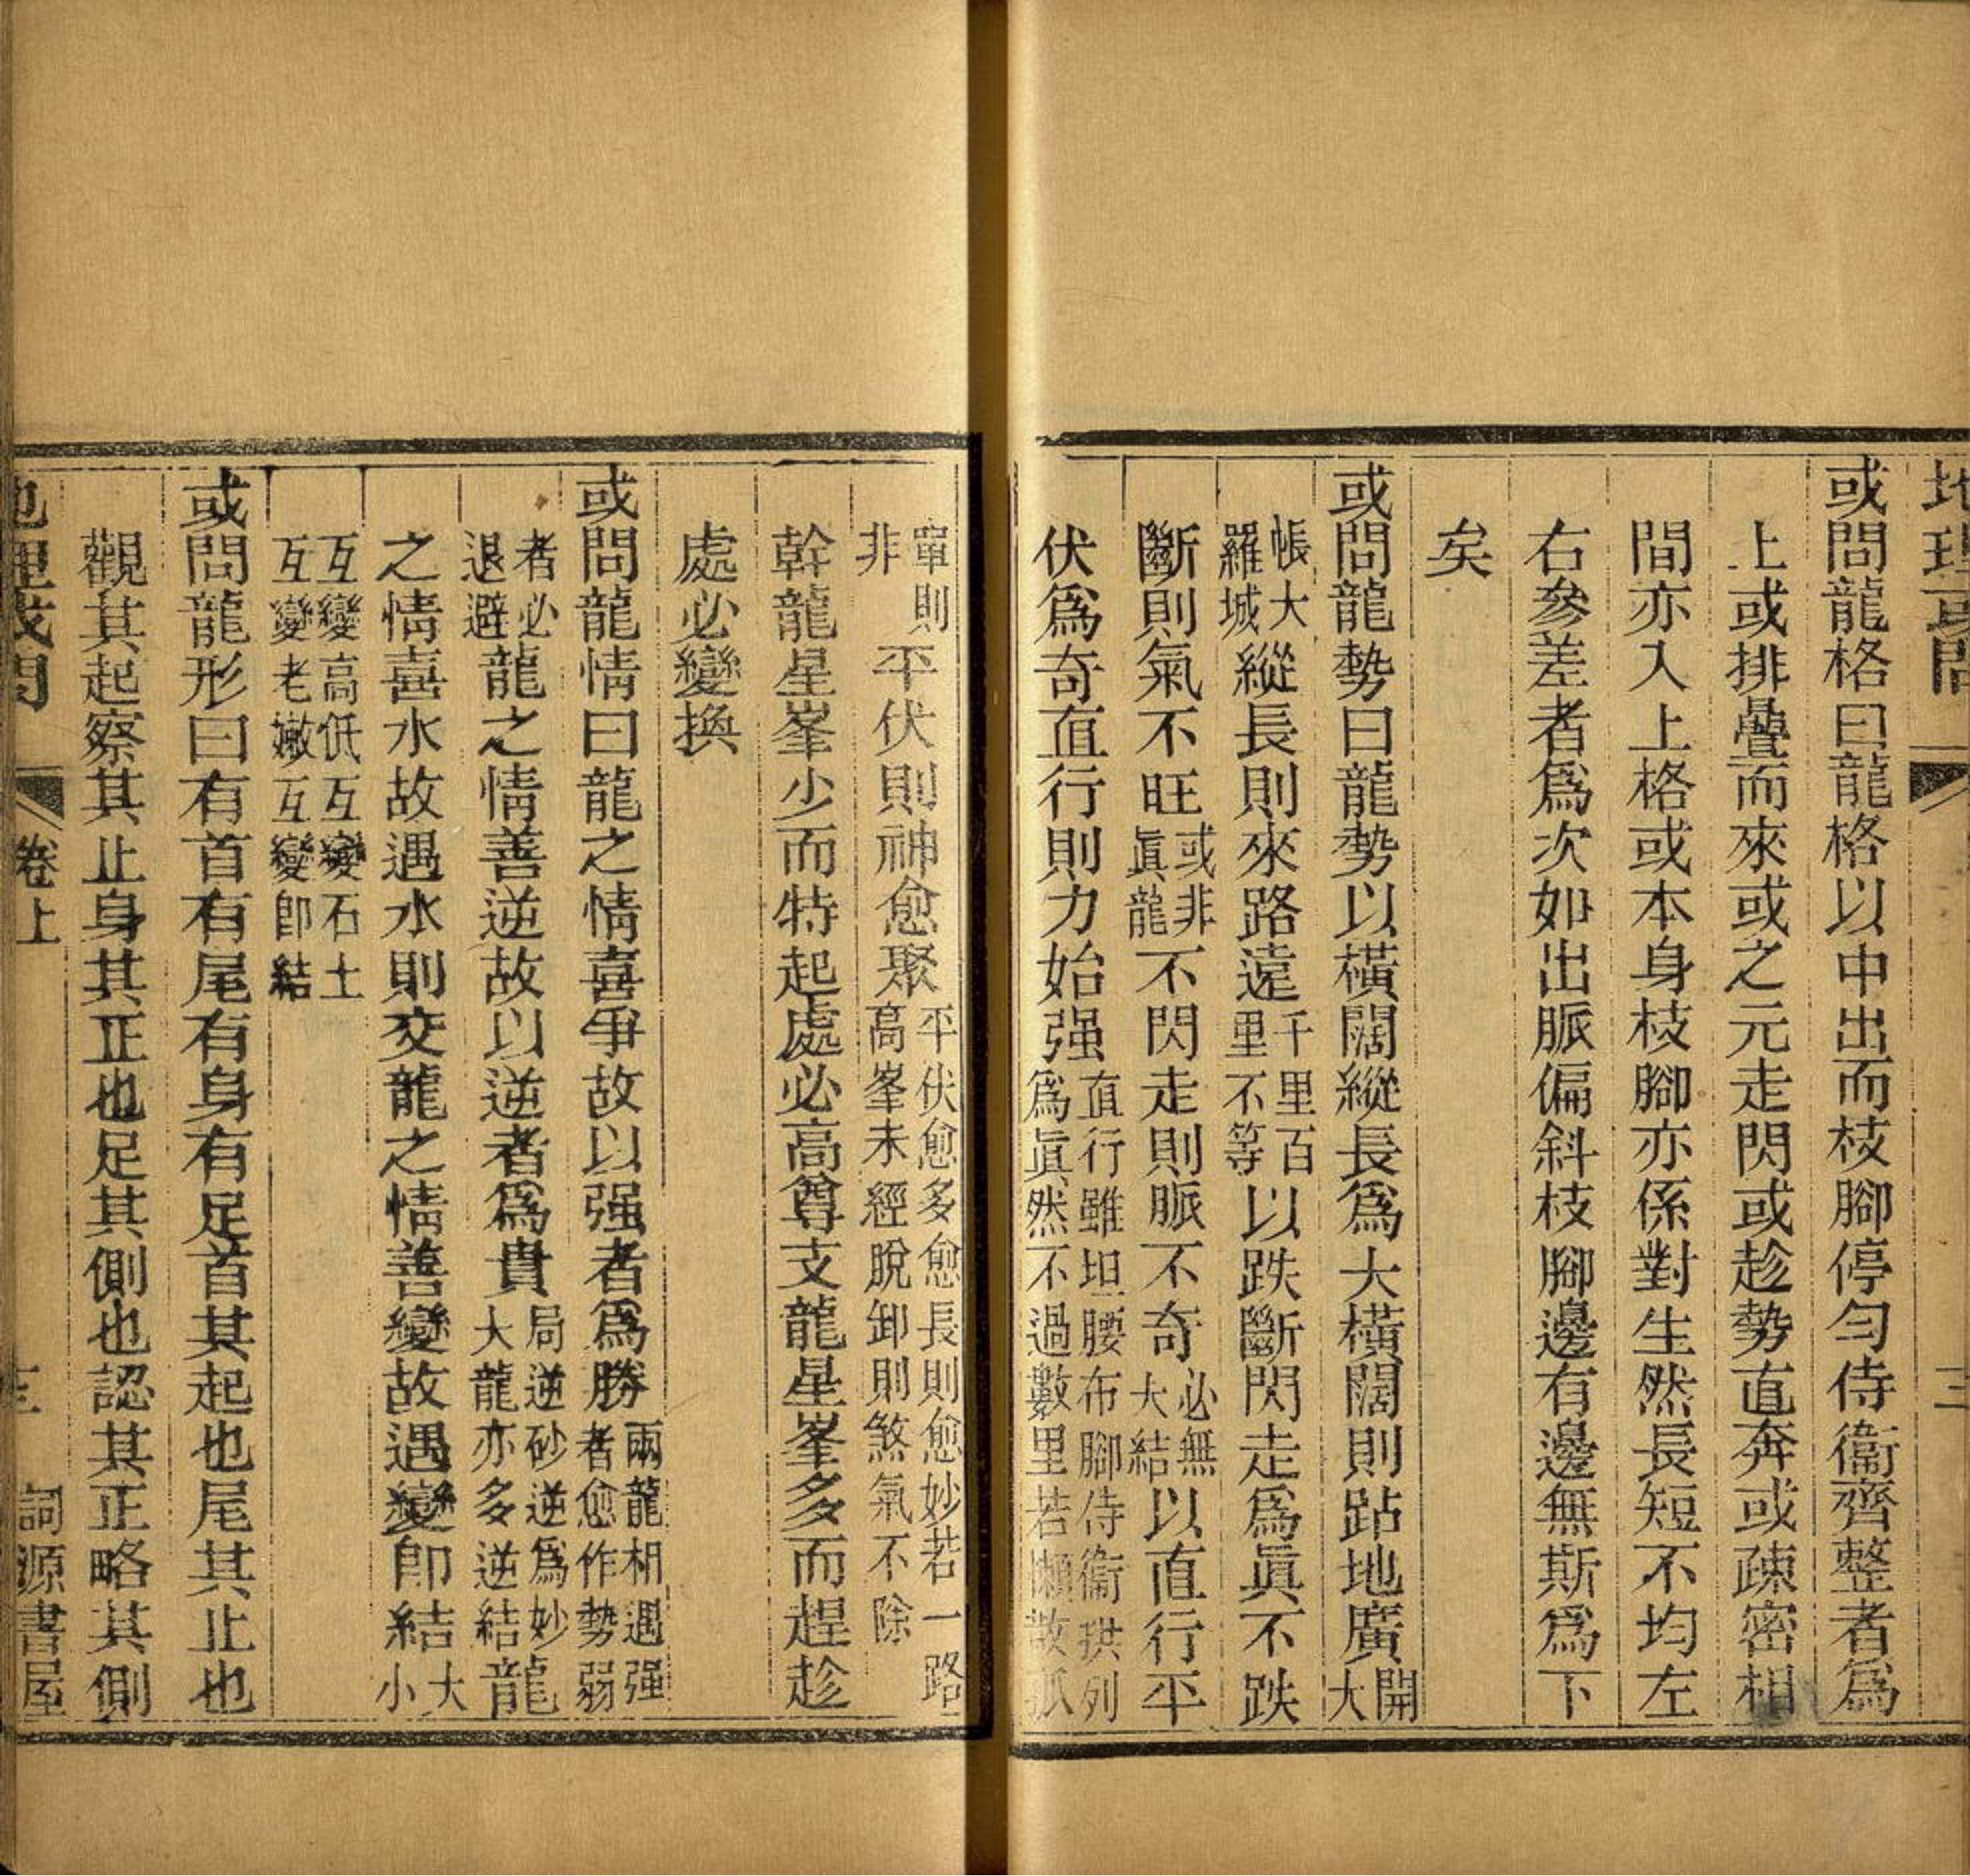 或問龍格曰龍格以中出而枝腳停勻侍衞齊整者爲
上或排疊而來或之元走閃或趁勢直奔或疎密相
間亦入上格或本身枝腳亦係對生然長短不均左
右參差者爲次如出脈偏斜枝腳邊有邊無斯爲下
矣
或問龍勢曰龍勢以橫闊縱長爲大橫闊則跕地廣開大
帳大羅城縱長則來路遠千里百里不等以跌斷閃走爲眞不跌
斷則氣不旺或非眞龍不閃走則脈不奇必無大結以直行平
伏爲奇直行則力始强直行雖坦腰布腳侍衞拱列爲眞然不過數里若懶散孤
單則非平伏則神愈聚平伏愈多愈長則愈妙若一路高峯未經脫卸則煞氣不除
幹龍星峯少而特起處必高尊支龍星峯多而趕趁
處必變換
或問龍情曰龍之情喜爭故以强者爲勝兩龍相遇强者愈作勢弱
者必退避龍之情善逆故以逆者爲貴局逆砂逆爲妙大龍亦多逆結龍
之情喜水故遇水則交龍之情善變故遇變卽結大小
互變高低互變石土互變老嫩互變卽結
或問龍形曰有首有尾有身有足首其起也尾其止也
觀其起察其止身其正也足其側也認其正略其側
地理或問 卷上 三 詞源書屋